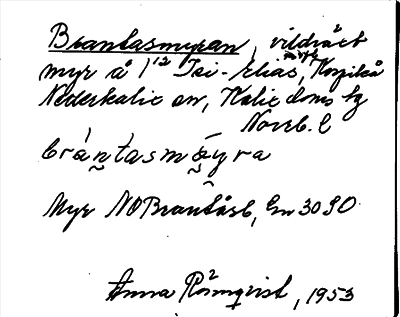 Brantasmyran, vildväxt
myr å 1¹² Isi-Elias, Korpikå
Nederkalix sn, Kalix doms hg
Norrb. l
brántasmǻyra
Myr NO Brantåsb, En 30 SO
Anna Rönnqvist, 1953